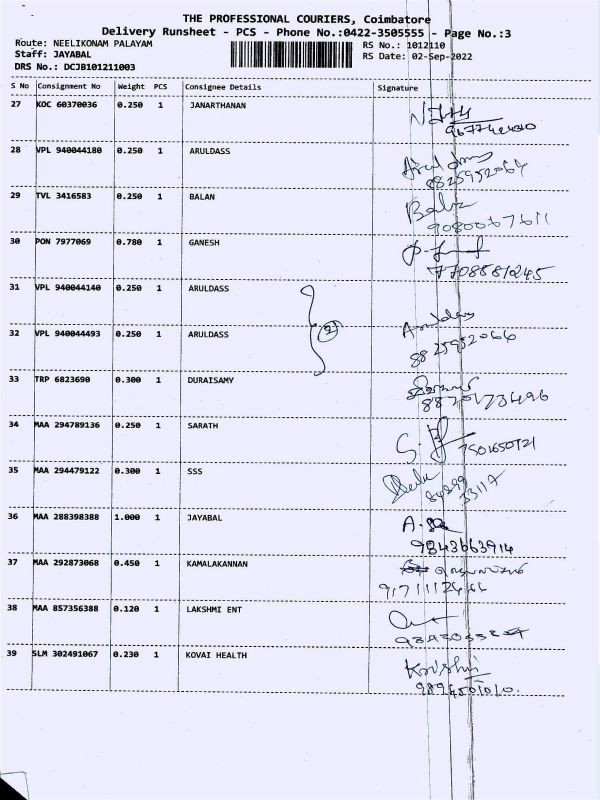 THE PROFESSIONAL COURIERS, Coimbatore
Delivery Runsheet - PCS - Phone No.:0422-3505555 - Page No.:3
Route: NEELIKONAM PALAYAM RS No.: 1012110
Staff: JAYABAL RS Date: 02-Sep-2022
DRS No.: DCJB101211003
S No Consignment No Weight PCS Consignee Details Signature
27 KOC 60370036 0.250 1 JANARTHANAN
28 VPL 940044180 0.250 1 ARULDASS
8825952064
29 TVL 3416583 0.250 1 BALAN
9080067611
30 PON 7977069 0.780 1 GANESH
7708581245
31 VPL 940044140 0.250 1 ARULDASS
2
32 VPL 940044493 0.250 1 ARULDASS
8825952066
33 TRP 6823690 0.300 1 DURAISAMY
34 MAA 294789136 0.250 1 SARATH
35 MAA 294479122 0.300 1 SSS
36 MAA 288398388 1.000 1 JAYABAL
9843663914
37 MAA 292873068 0.450 1 KAMALAKANNAN
38 MAA 857356388 0.120 1 LAKSHMI ENT
39 SLM 302491067 0.230 1 KOVAI HEALTH